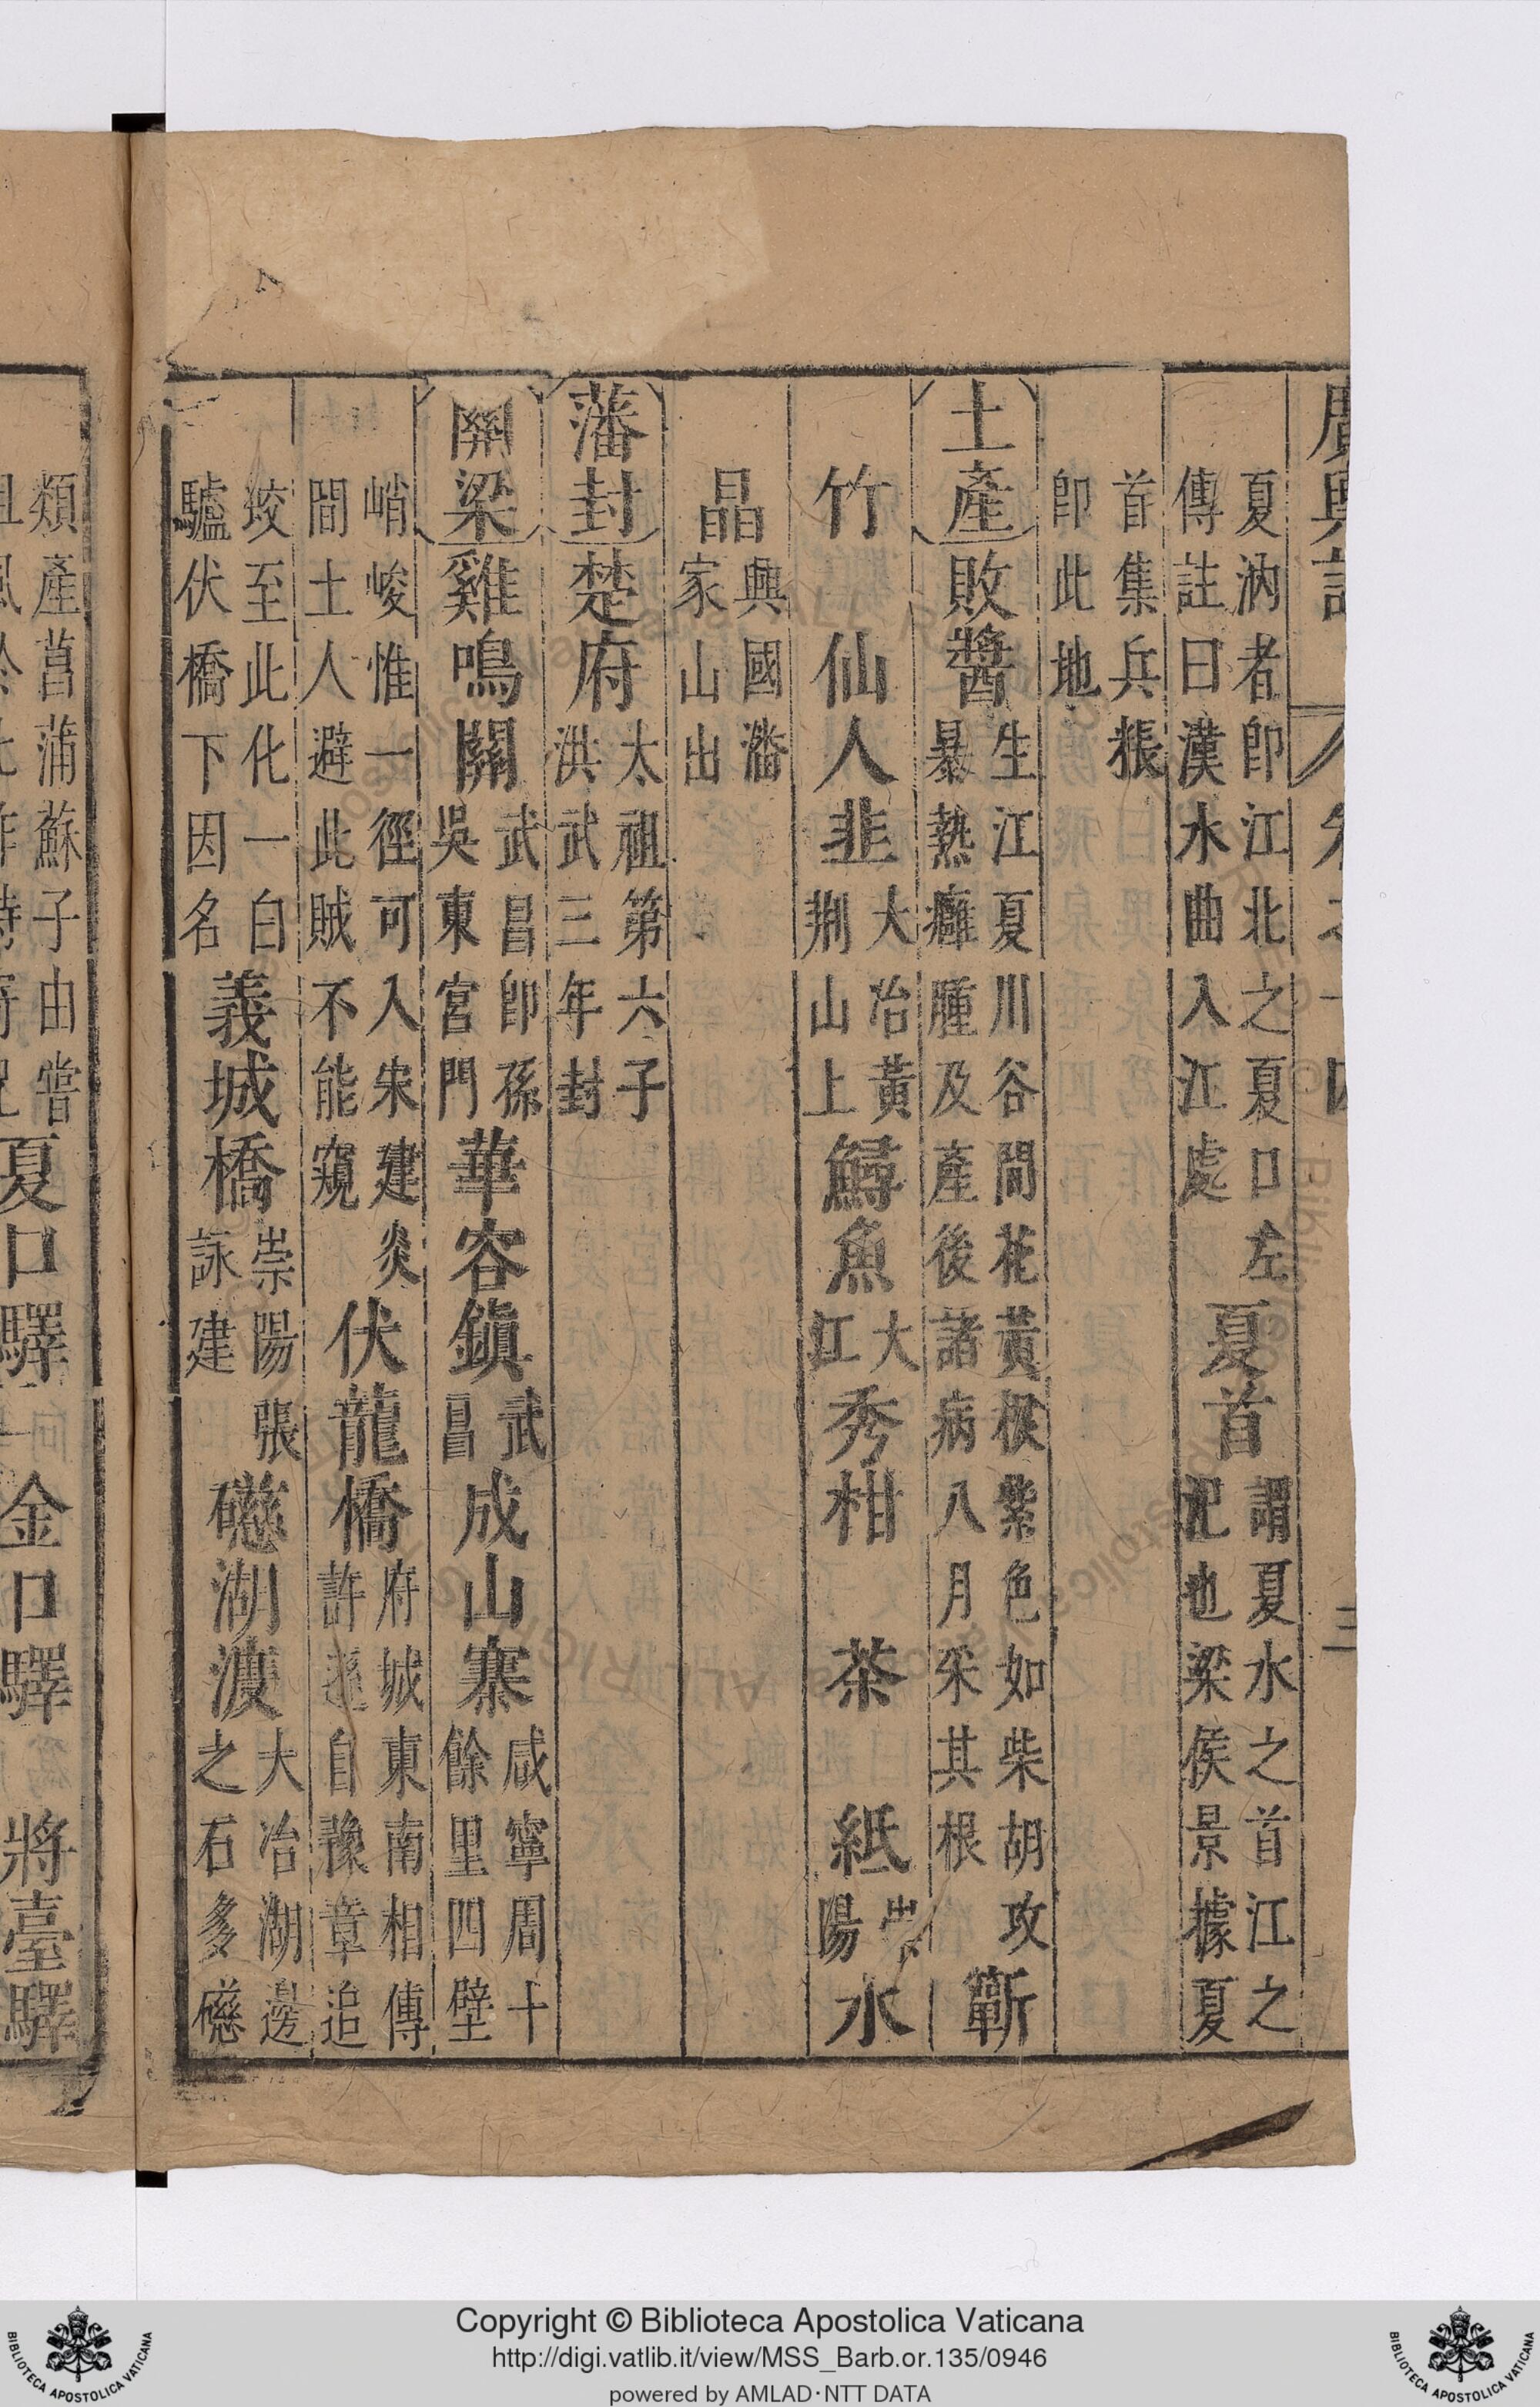 廣輿記 卷之十四 三
夏汭者卽江北之夏口左傳註曰漢水曲入江處夏首謂夏水之首江之汜也梁侯景據夏
首集兵粻卽此地
土產敗醬生江夏川谷間花黃根紫色如柴胡攻暴熱癰腫及產後諸病八月采其根蘄
竹 仙人韭大冶黃荆山上鱘魚大江秀柑 茶 紙崇陽水
晶興國潘家山出
藩封楚府太祖第六子洪武三年封
關梁雞鳴關武昌卽孫吳東宮門華容鎮武昌成山寨咸寧周十餘里四壁
峭峻惟一徑可入宋建炎間土人避此賊不能窺伏龍橋府城東南相傳許遜自豫章追
蛟至此化一白驢伏橋下因名義城橋崇陽張詠建礠湖渡大冶湖邊之石多礠
類產菖蒲蘇子由嘗夏口驛 金口驛 將臺驛
Copyright © Biblioteca Apostolica Vaticana
http://digi.vatlib.it/view/MSS_Barb.or.135/0946
powered by AMLAD·NTT DATA
BIBLIOTECA APOSTOLICA VATICANA
BIBLIOTECA APOSTOLICA VATICANA